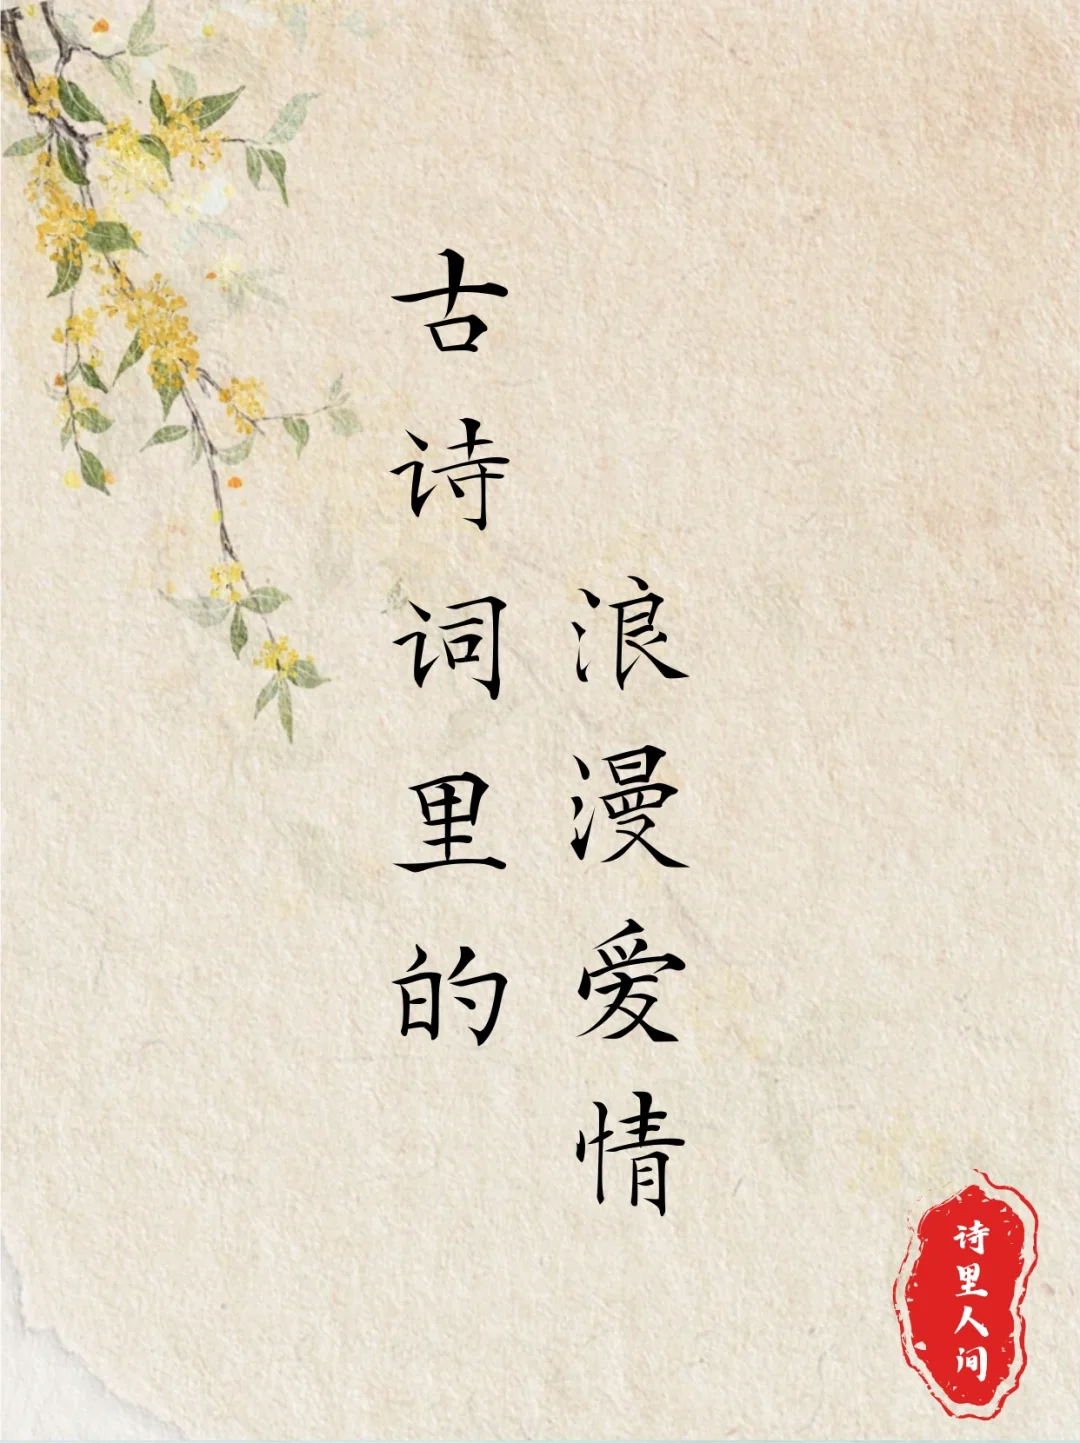 古诗词里的
浪漫爱情
诗里人间